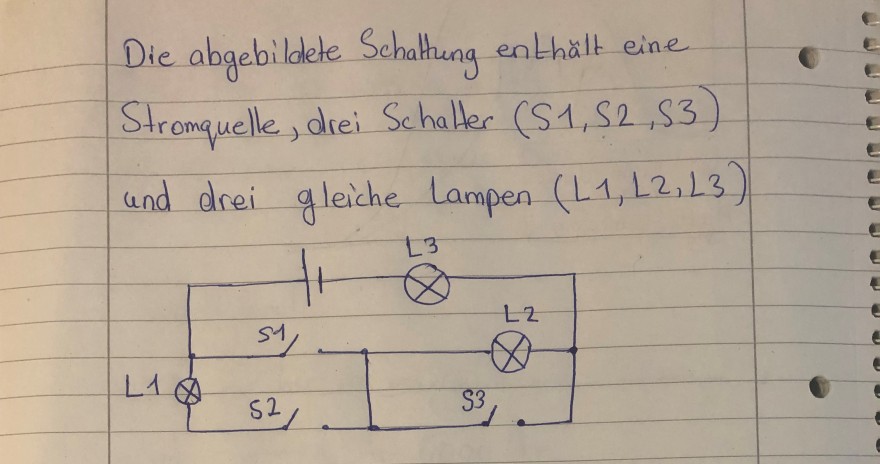 Die abgebildete Schaltung enthält eine
Stromquelle, drei Schalter (S1, S2, S3)
und drei gleiche Lampen (L1, L2, L3)
L3
L2
S1
L1
S2
S3